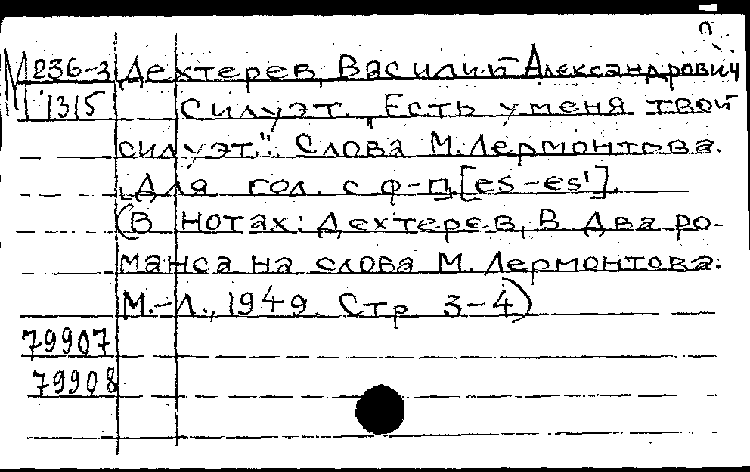 п
М 236-3 Дехтерев, Василий Александрович
1315 Силуэт. "Есть у меня твой
силуэт." Слова М. Лермонтова.
Для гол. с ф-п. [es-es'].
(В нотах: Дехтерев, В. Два ро-
манса на слова М. Лермонтова.
М.-Л., 1949. Стр. 3-4)
79907
79908